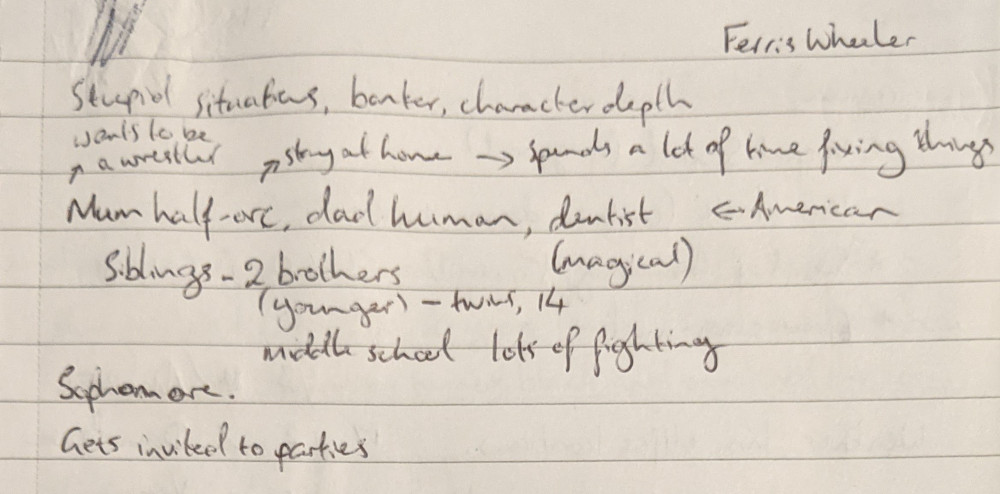 Ferris Wheeler
Stupid situations, banter, character depth
wants to be
↗ a wrestler ↗ stay at home → spends a lot of time fixing things
Mum half-orc, dad human, dentist ← American
Siblings - 2 brothers (magical)
(younger) - twins, 14
middle school lots of fighting
Sophomore.
Gets invited to parties